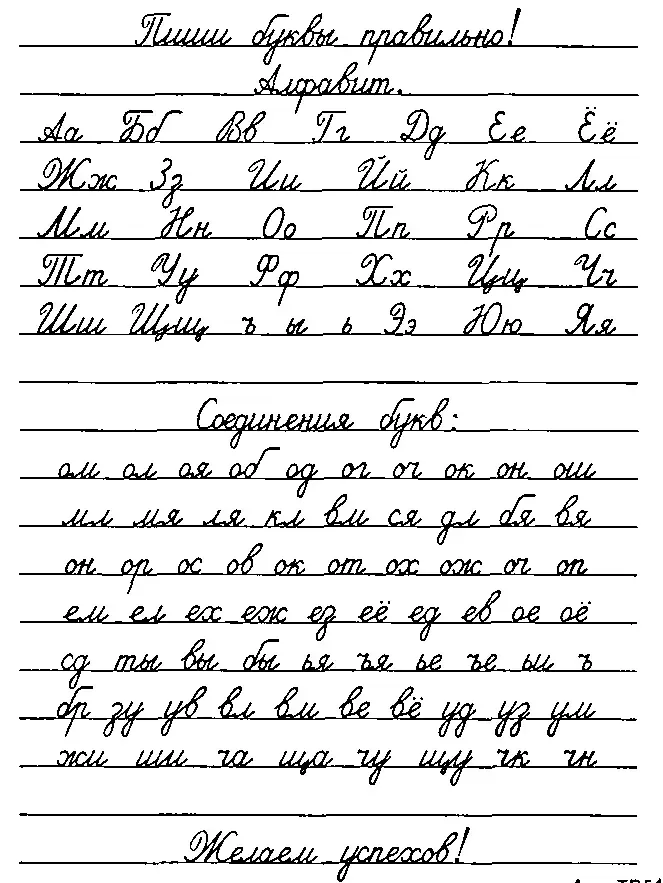 Пиши буквы правильно!
Алфавит.
Аа Бб Вв Гг Дд Ее Ёё
Жж Зз Ии Йй Кк Лл
Мм Нн Оо Пп Рр Сс
Тт Уу Фф Хх Цц Чч
Шш Щщ ъ ы ь Ээ Юю Яя
Соединения букв:
ом ол оя об од ог оч ок он ош
мл мя ля кл вм ся дл бя вя
он ор ос ов ок от ох ож оч оп
ем ел ех еж ез её ед ев ое оё
сд ты вы бы ья ъя ье ъе ьи ъ
бр зу ув вл вм ве вё уд уз ум
жи ши ча ща чу щу чк чн
Желаем успехов!